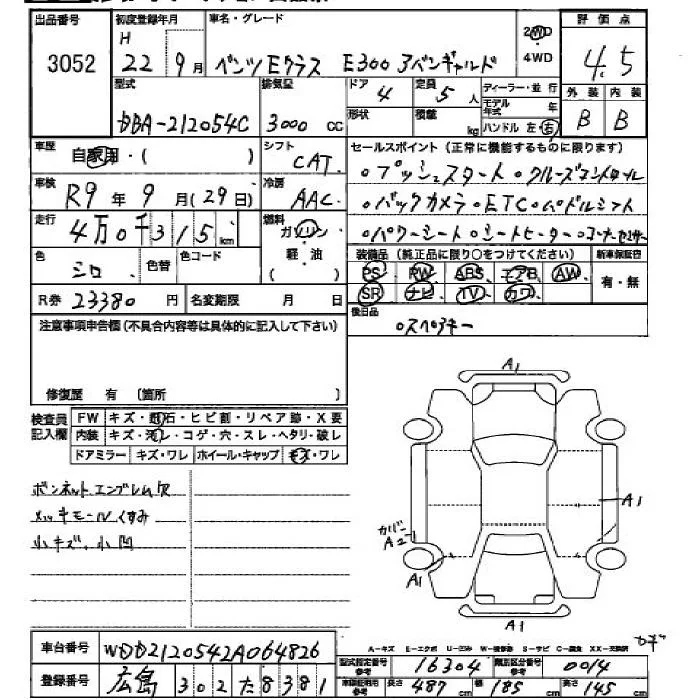 出品番号 初度登録年月 車名・グレード 2WD 評価点
3052 H 22 9月 ベンツEクラス E300アバンギャルド 4WD 4.5
型式 排気量 ドア 定員 ディーラー・並行 外装 内装
DBA-212054C 3000 cc 4 5人 モデル年式 年 B B
形状 積載 kg ハンドル 左・右
車歴 自家用・( ) シフト CAT. セールスポイント(正常に機能するものに限ります)
車検 R9年9月(29日) 冷房 AAC. ○プッシュスタート○クルーズコントロール
走行 4万0千315km 燃料 ガソリン・軽油 ○バックカメラ○ETC○パドルシフト
○パワーシート○シートヒーター○コーナーセンサー
色 シロ 色替 色コード 装備品(純正品に限り○をつけてください) 新車保証書
PS PW ABS エアB AW 有・無
R券 23380円 名変期限 月 日 SR ナビ TV カワ
注意事項申告欄(不具合内容等は具体的に記入して下さい) 後日品
○スペアキー
修復歴 有 〔箇所
検査員記入欄 FW キズ・飛石・ヒビ割・リペア跡・X要
内装 キズ・汚レ・コゲ・穴・スレ・ヘタリ・破レ
ドアミラー キズ・ワレ ホイール・キャップ キズ・ワレ
A1
ボンネットエンブレム欠
メッキモールくすみ
小キズ、小凹
A1
カバー
A2
A1
A1
A-キズ E-エクボ U-凹み W-補修跡 S-サビ C-腐食 XX-交換済
車台番号 WDD2120542A064826
型式指定番号参考 16304 類別区分番号参考 0014
登録番号 広島 302 た 8381
長さ 487cm 幅 185cm 高さ 145cm